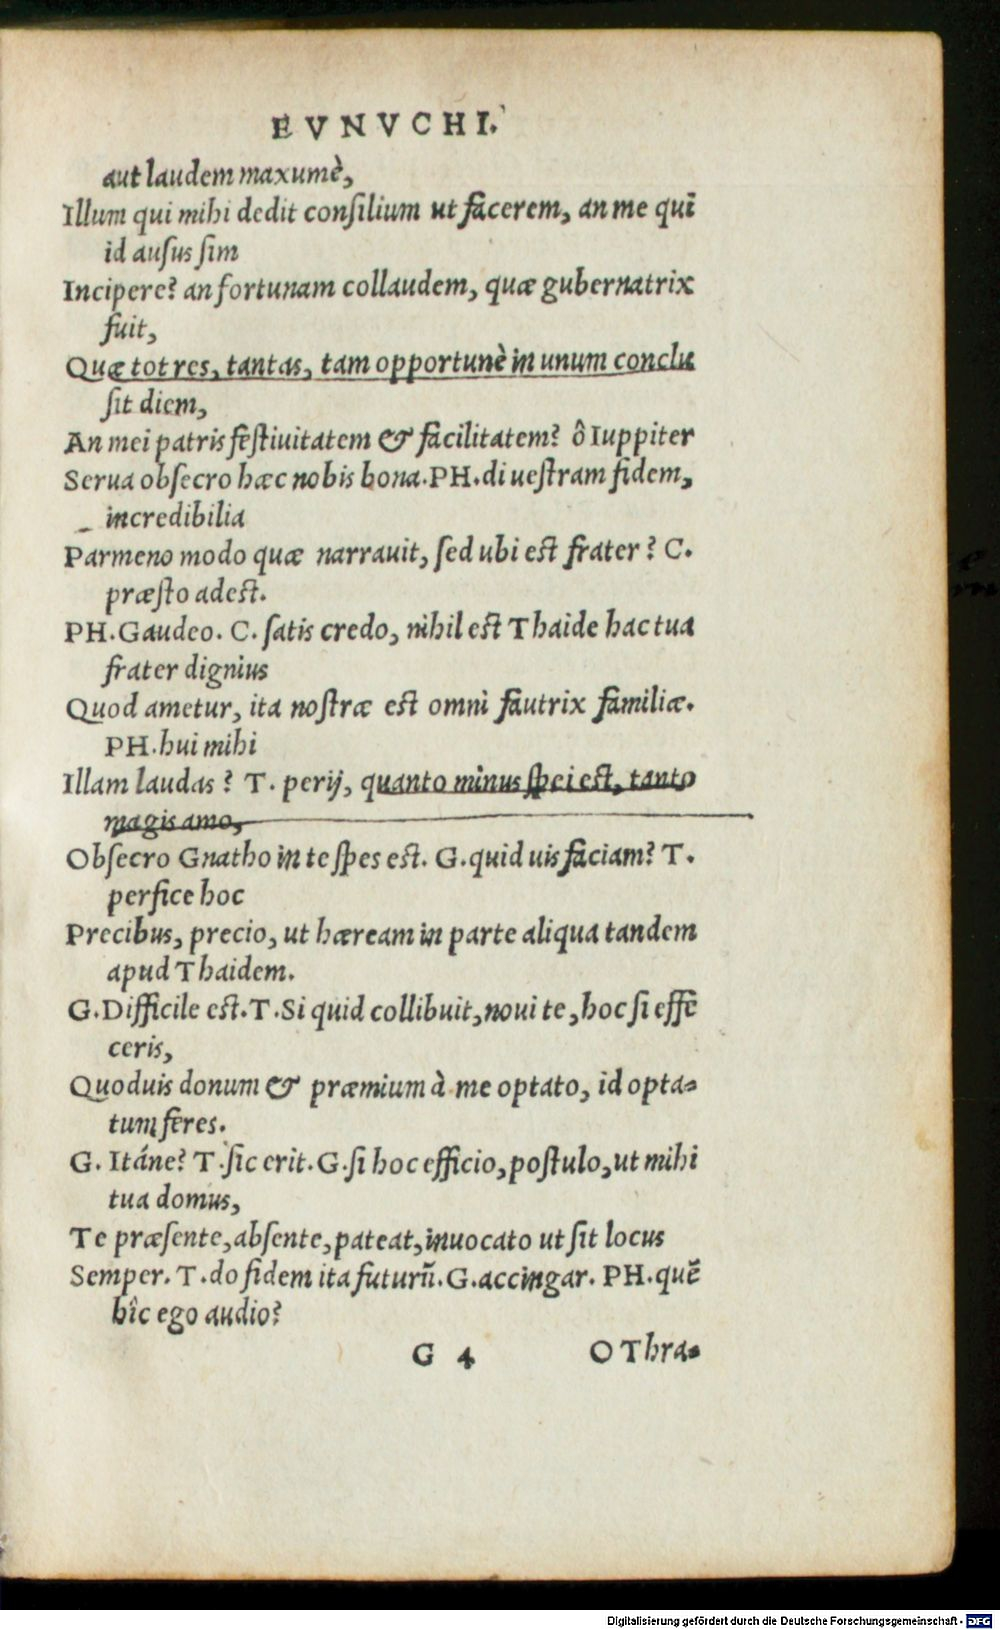 EVNVCHI.
aut laudem maxumè,
Illum qui mihi dedit conſilium ut facerem, an me quī
id auſus ſim
Incipere? an fortunam collaudem, quæ gubernatrix
fuit,
Quæ tot res, tantas, tam opportunè in unum conclu
ſit diem,
An mei patris feſtiuitatem & facilitatem? ô Iuppiter
Serua obſecro hæc nobis bona. PH. di ueſtram fidem,
incredibilia
Parmeno modo quæ narrauit, ſed ubi eſt frater? C.
præſto adeſt.
PH. Gaudeo. C. ſatis credo, nihil eſt Thaide hac tua
frater dignius
Quod ametur, ita noſtræ eſt omni fautrix familiæ.
PH. hui mihi
Illam laudas? T. perij, quanto minus ſpei eſt, tanto
magis amo,
Obſecro Gnatho in te ſpes eſt. G. quid uis faciam? T.
perfice hoc
Precibus, precio, ut hæream in parte aliqua tandem
apud Thaidem.
G. Difficile eſt. T. Si quid collibuit, noui te, hoc ſi effē
ceris,
Quoduis donum & præmium à me optato, id opta-
tum feres.
G. Itáne? T. ſic erit. G. ſi hoc efficio, poſtulo, ut mihi
tua domus,
Te præſente, abſente, pateat, inuocato ut ſit locus
Semper. T. do fidem ita futurū. G. accingar. PH. quē
hîc ego audio?
G 4 O Thra-
Digitalisierung gefördert durch die Deutsche Forschungsgemeinschaft - DFG